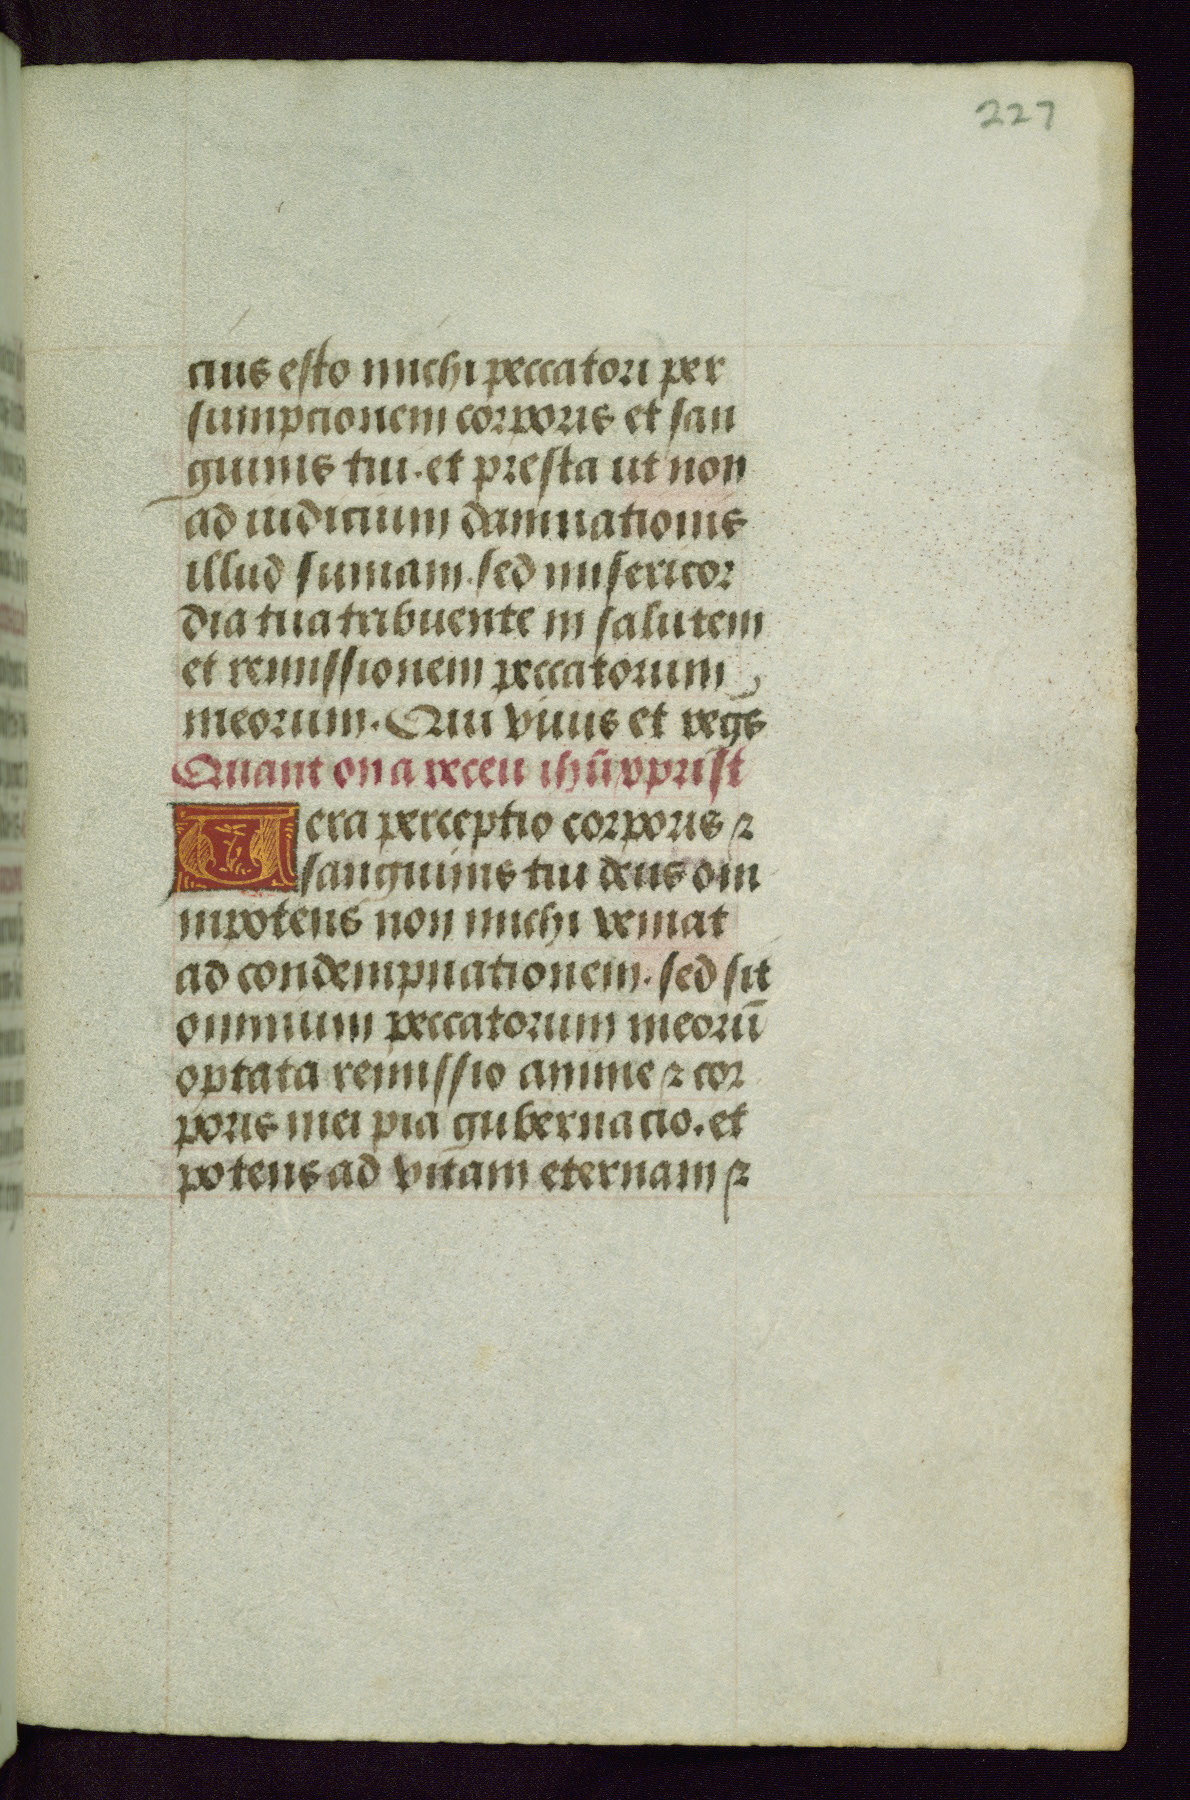 227
cius esto michi peccatori per
sumpcionem corporis et san
guinis tui. et presta ut non
ad iudicium damnationis
illud sumam. sed misericor
dia tua tribuente in salutem
et remissionem peccatorum
meorum. Qui viuis et regs̄
Quant on a receu ihūxprist
Uera perceptio corporis ⁊
sanguinis tui deus om
nipotens non michi veniat
ad condempnationem. sed sit
omnium peccatorum meorū
optata remissio anime ⁊ cor
poris mei pia gubernacio. et
potens ad vitam eternam ⁊